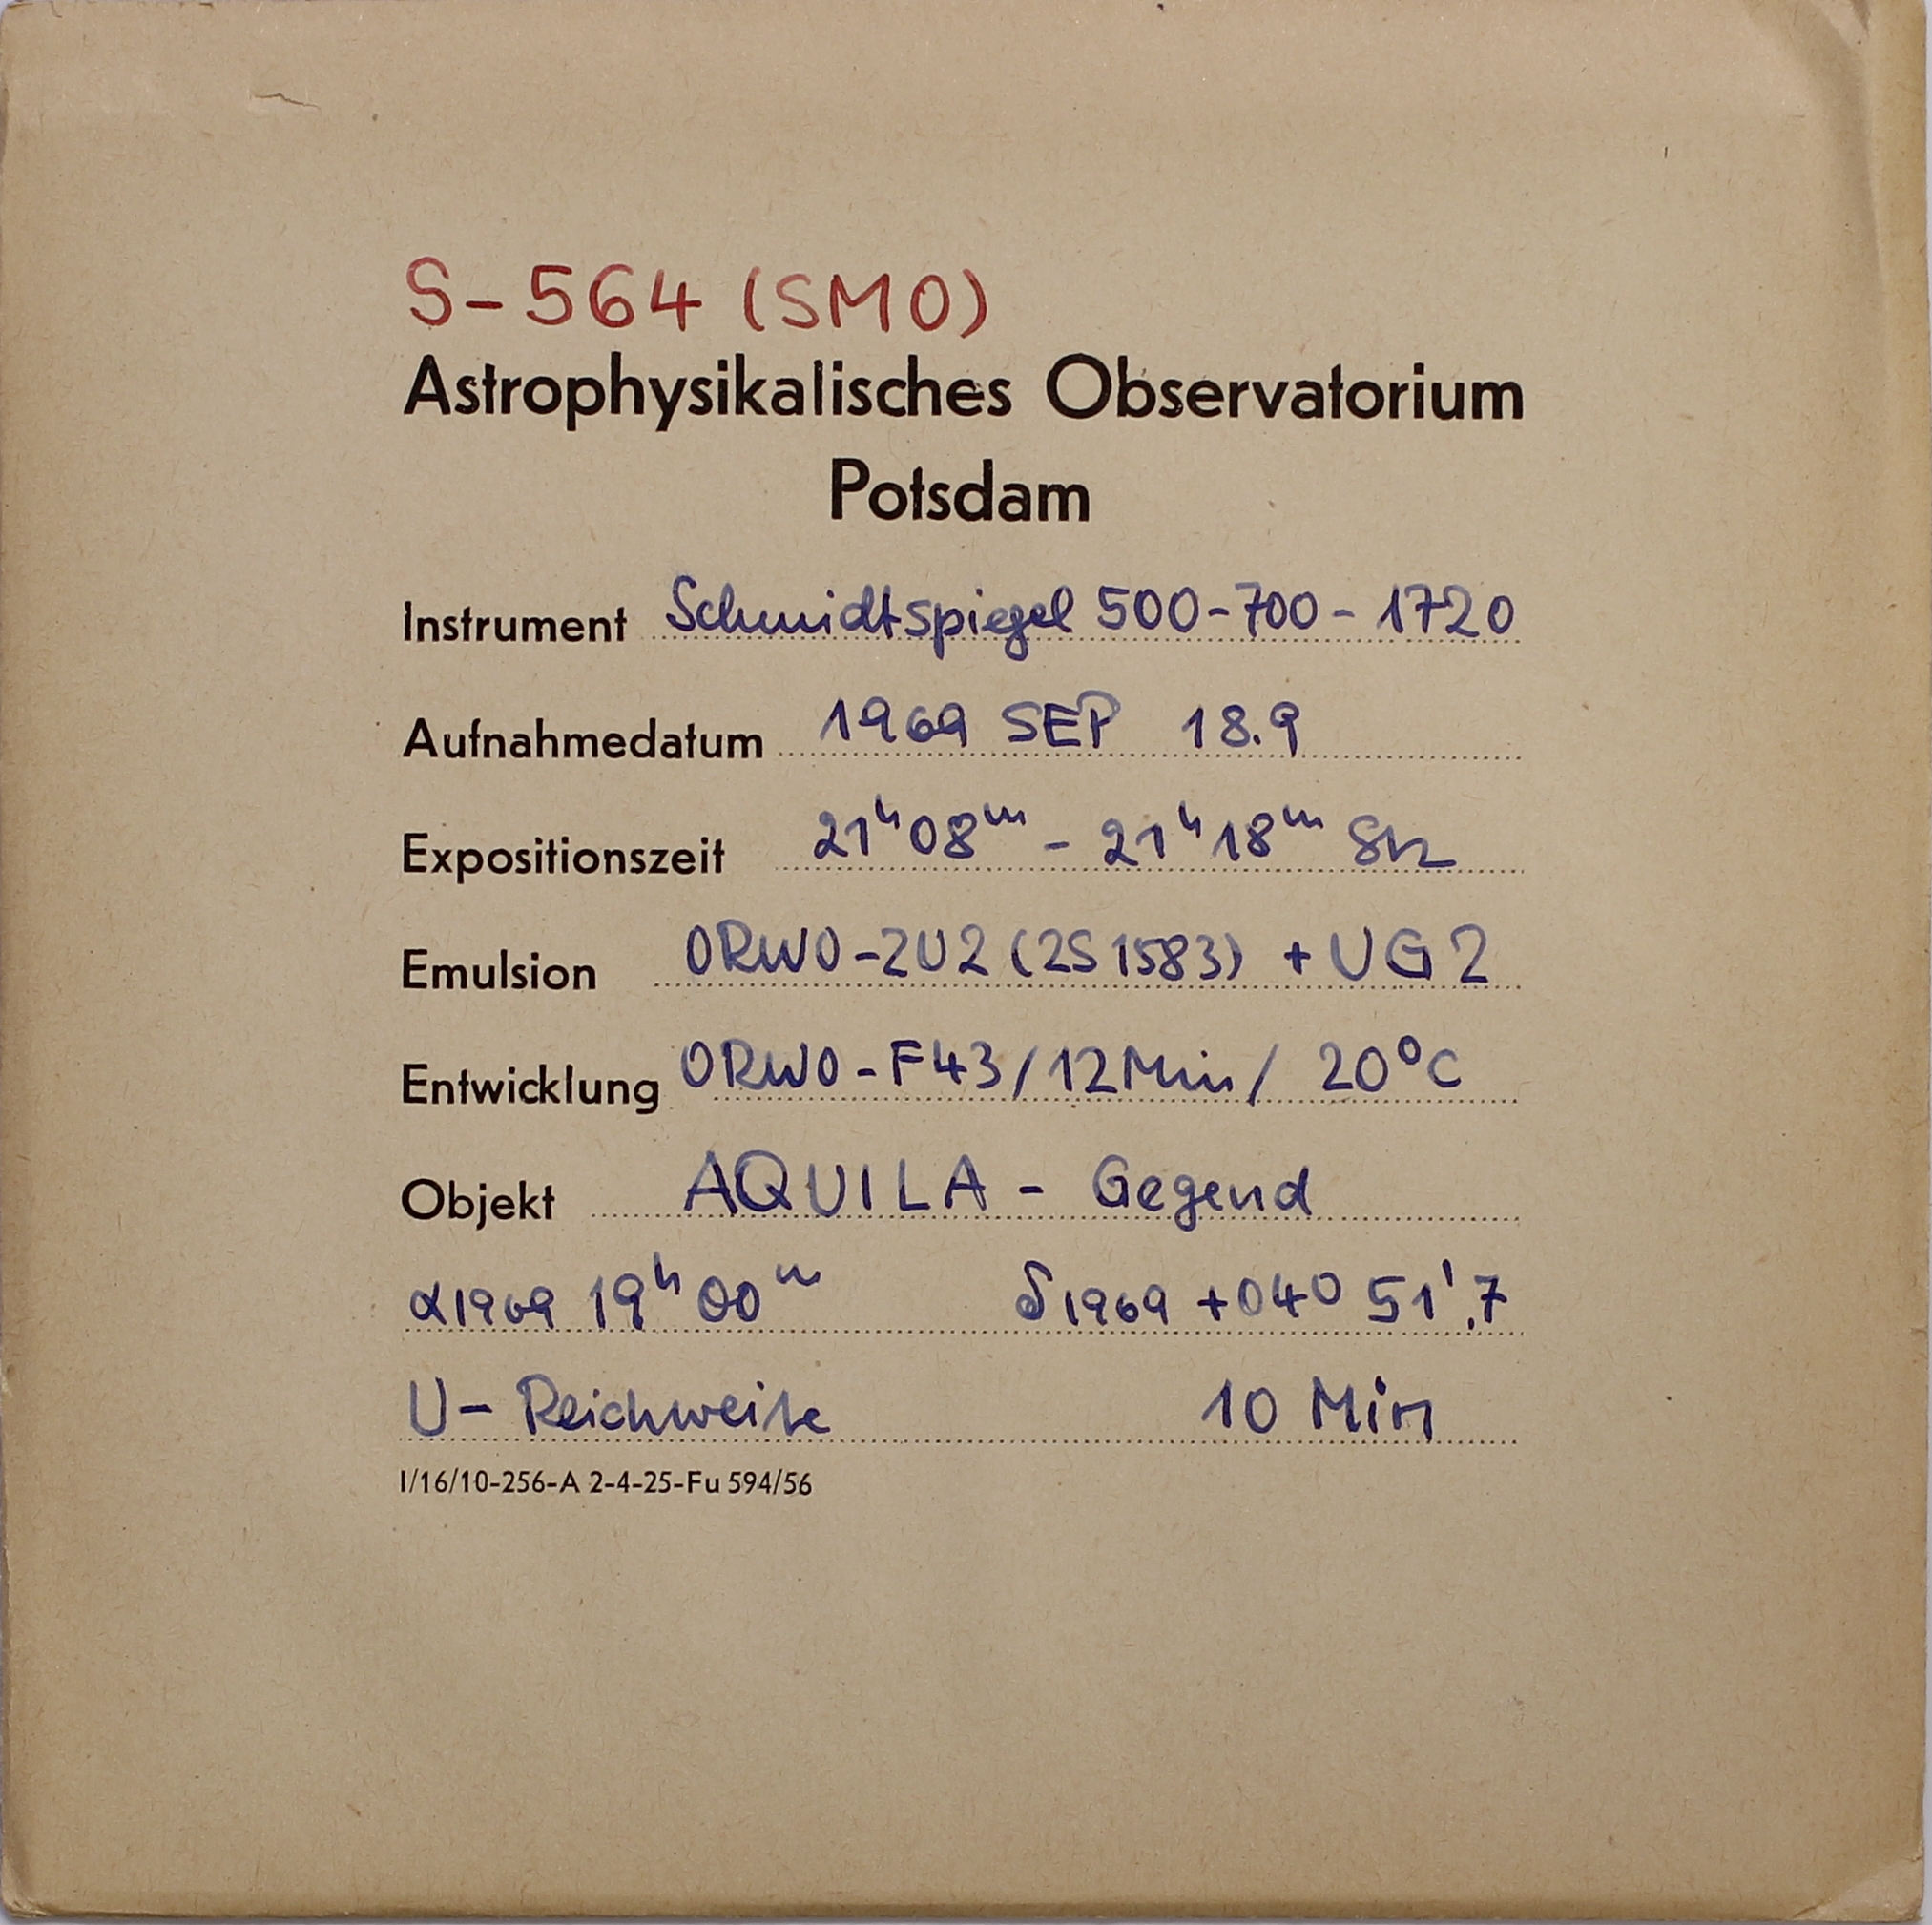 S-564 (SMO)
Astrophysikalisches Observatorium
Potsdam
Instrument Schmidtspiegel 500-700-1720
Aufnahmedatum 1969 SEP 18.9
Expositionszeit 21ʰ08ᵐ - 21ʰ18ᵐ Stz
Emulsion ORWO-ZU2 (2S1583) + UG2
Entwicklung ORWO-F43/12Min/ 20°C
Objekt AQUILA - Gegend
α1969 19ʰ00ᵐ δ1969 +04° 51',7
U-Reichweite 10 Min
I/16/10-256-A 2-4-25-Fu 594/56